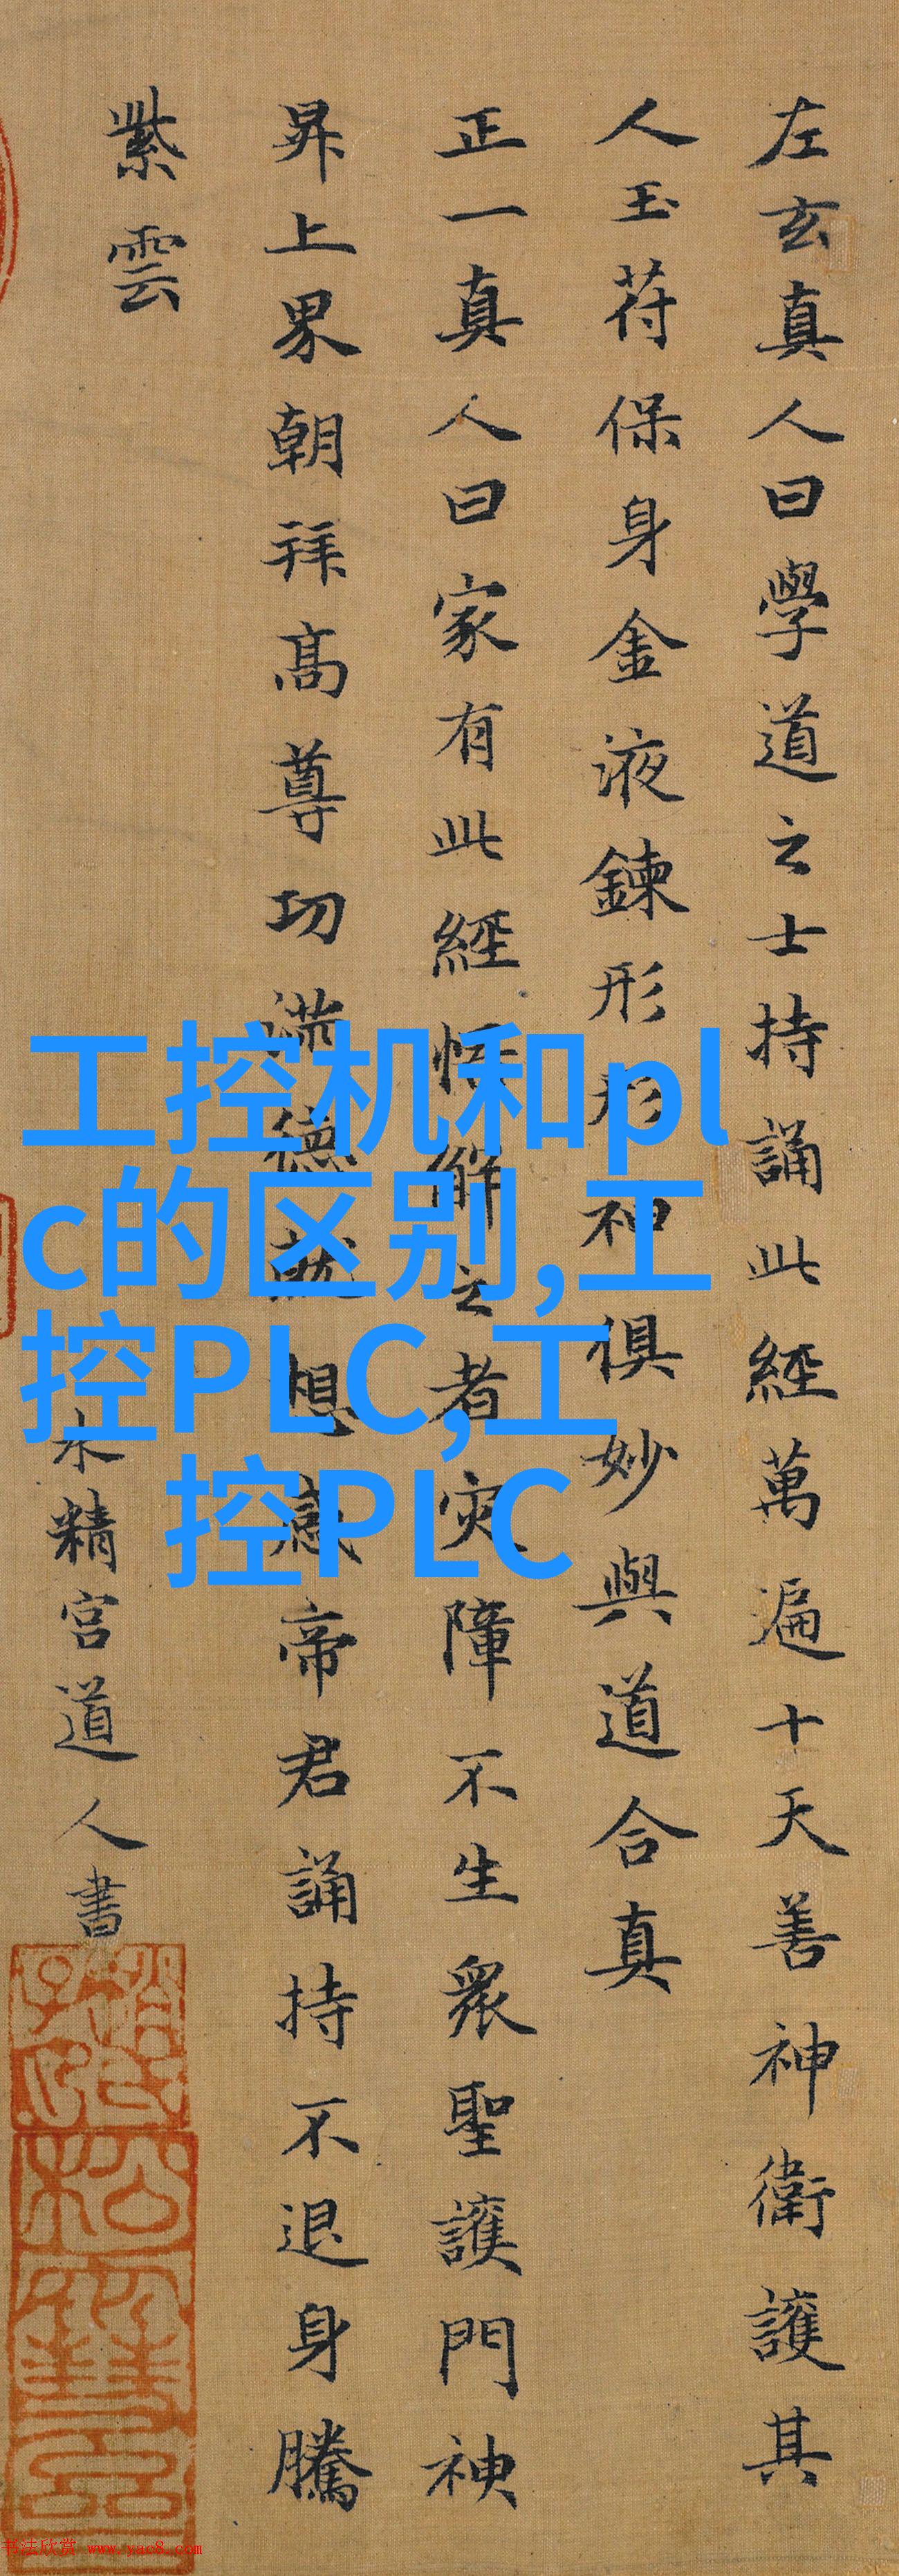 左玄真人曰學道之士持誦此經萬遍十天善神衛護其
人玉苻保身金液鍊形形神俱妙與道合真
正一真人曰家有此經悟解之者灾障不生衆聖護門神
昇上界朝拜髙尊功滿德就想感帝君誦持不退身騰
紫雲
水精宮道人書
工控机和pl
c的区别,工
控PLC,工
控PLC
书法欣赏 www.yac8.com